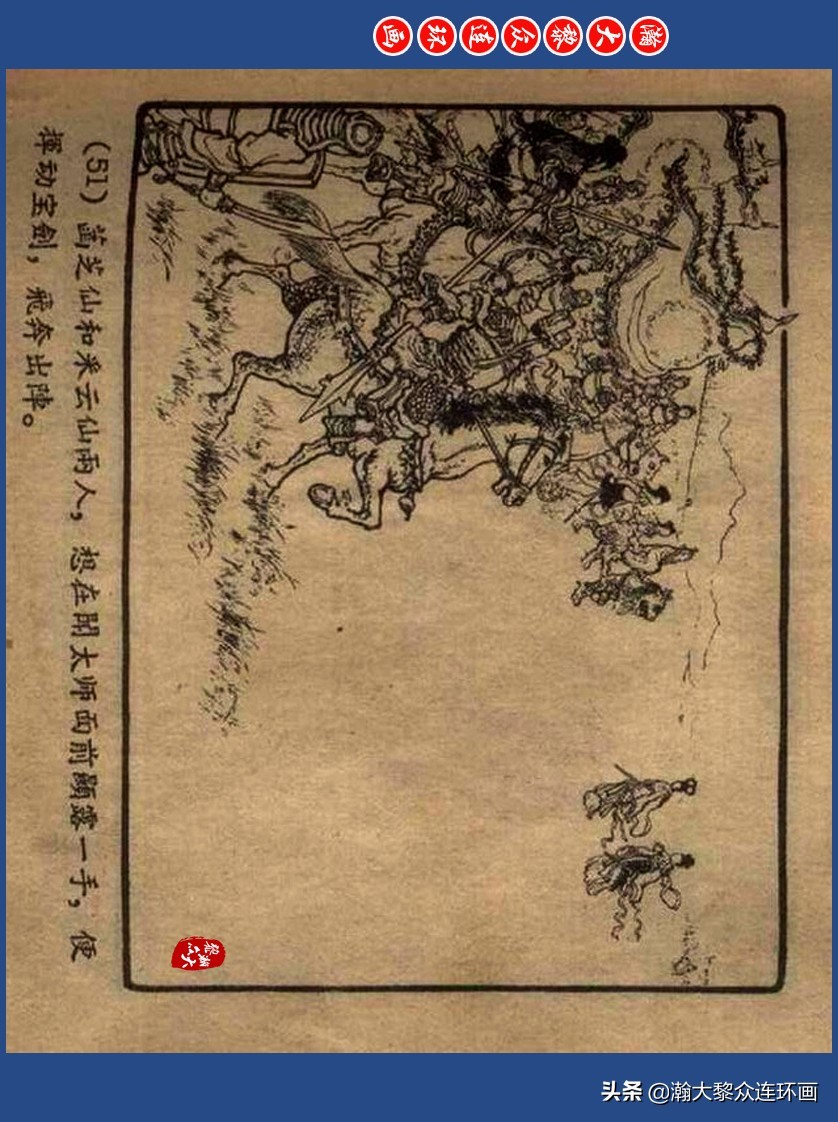 瀚大黎众连环画
(51) 菡芝仙和采云仙兩人，想在聞太师面前顯露一手，便
揮动宝剑，飛奔出陣。
瀚大黎众
头条 @瀚大黎众连环画